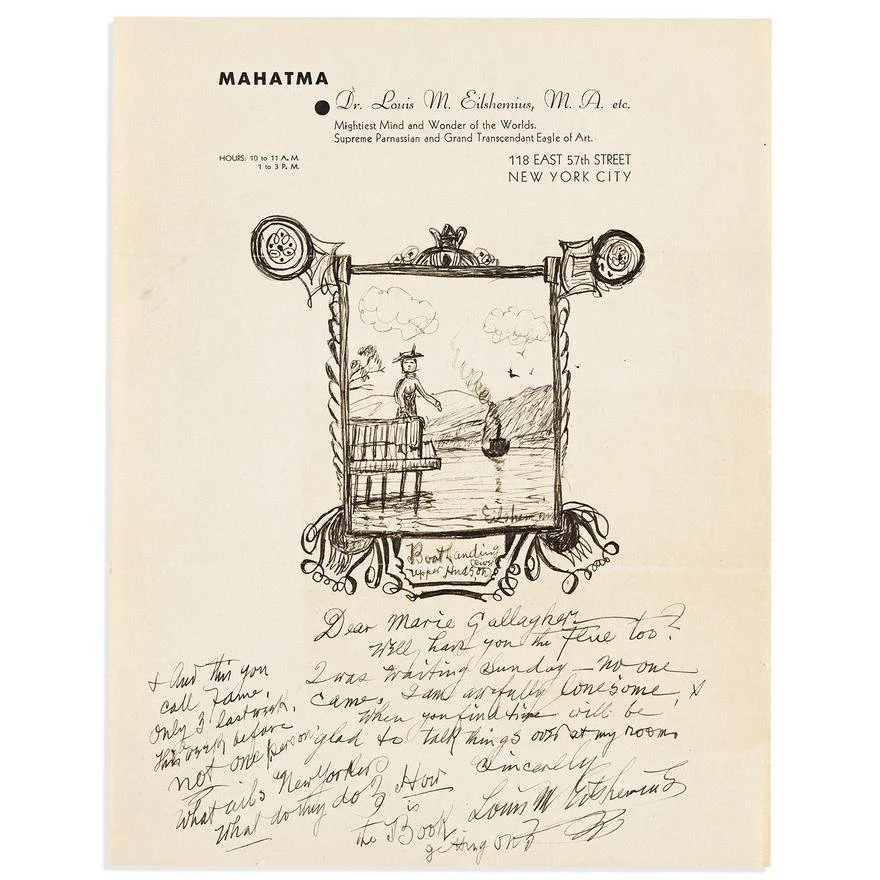 MAHATMA
Dr. Louis M. Eilshemius, M. A. etc.
Mightiest Mind and Wonder of the Worlds.
Supreme Parnassian and Grand Transcendant Eagle of Art.
HOURS: 10 to 11 A. M.
1 to 3 P. M.
118 EAST 57th STREET
NEW YORK CITY
Eilshemius
Boat Landing
upper Hudson
Dear Marie Gallagher
Well, have you the flue too?
I was waiting Sunday — no one
came. I am awfully lonesome, x
When you find time will be
glad to talk things over at my room.
Sincerely
Louis M Eilshemius
x And this you
call Fame.
Only 3 last week.
This week before
not one person.
What ails New Yorkers
What do they do?
How
is
the Book
getting on?